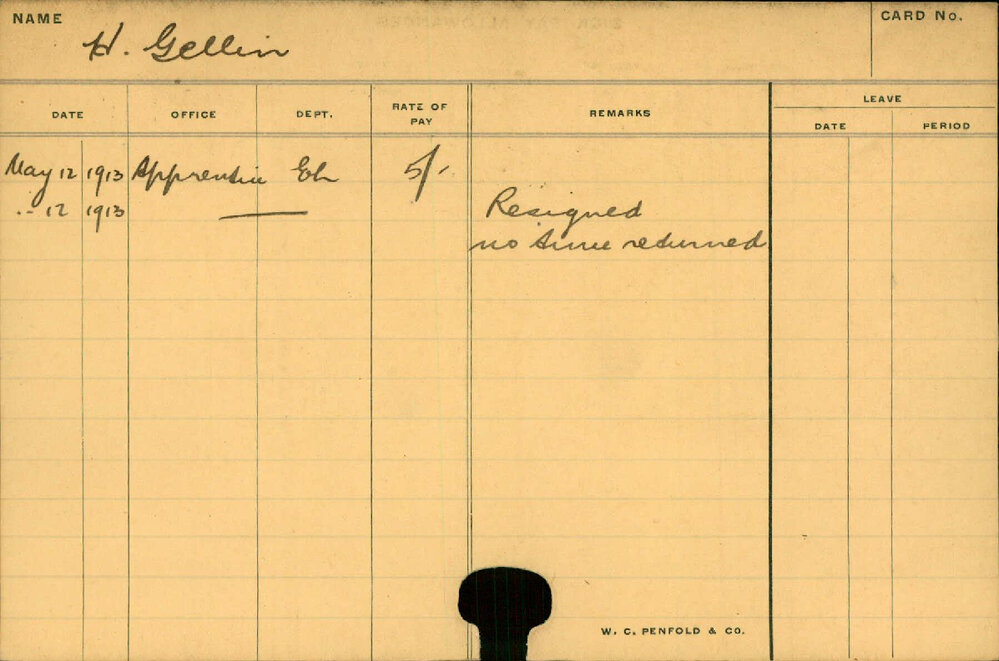 NAME
H. Gellin
CARD No.
DATE OFFICE DEPT. RATE OF PAY REMARKS LEAVE
DATE PERIOD
May 12 1913 Apprentice 5/-
" 12 1913 — Resigned
no time returned
W. C. PENFOLD & CO.